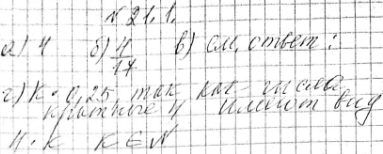 № 21.1.
а) 4 б) 4/17 в) см. ответ:
г) K · 0,25 так как числа
кратные 4 имеют вид
4·K K∈N